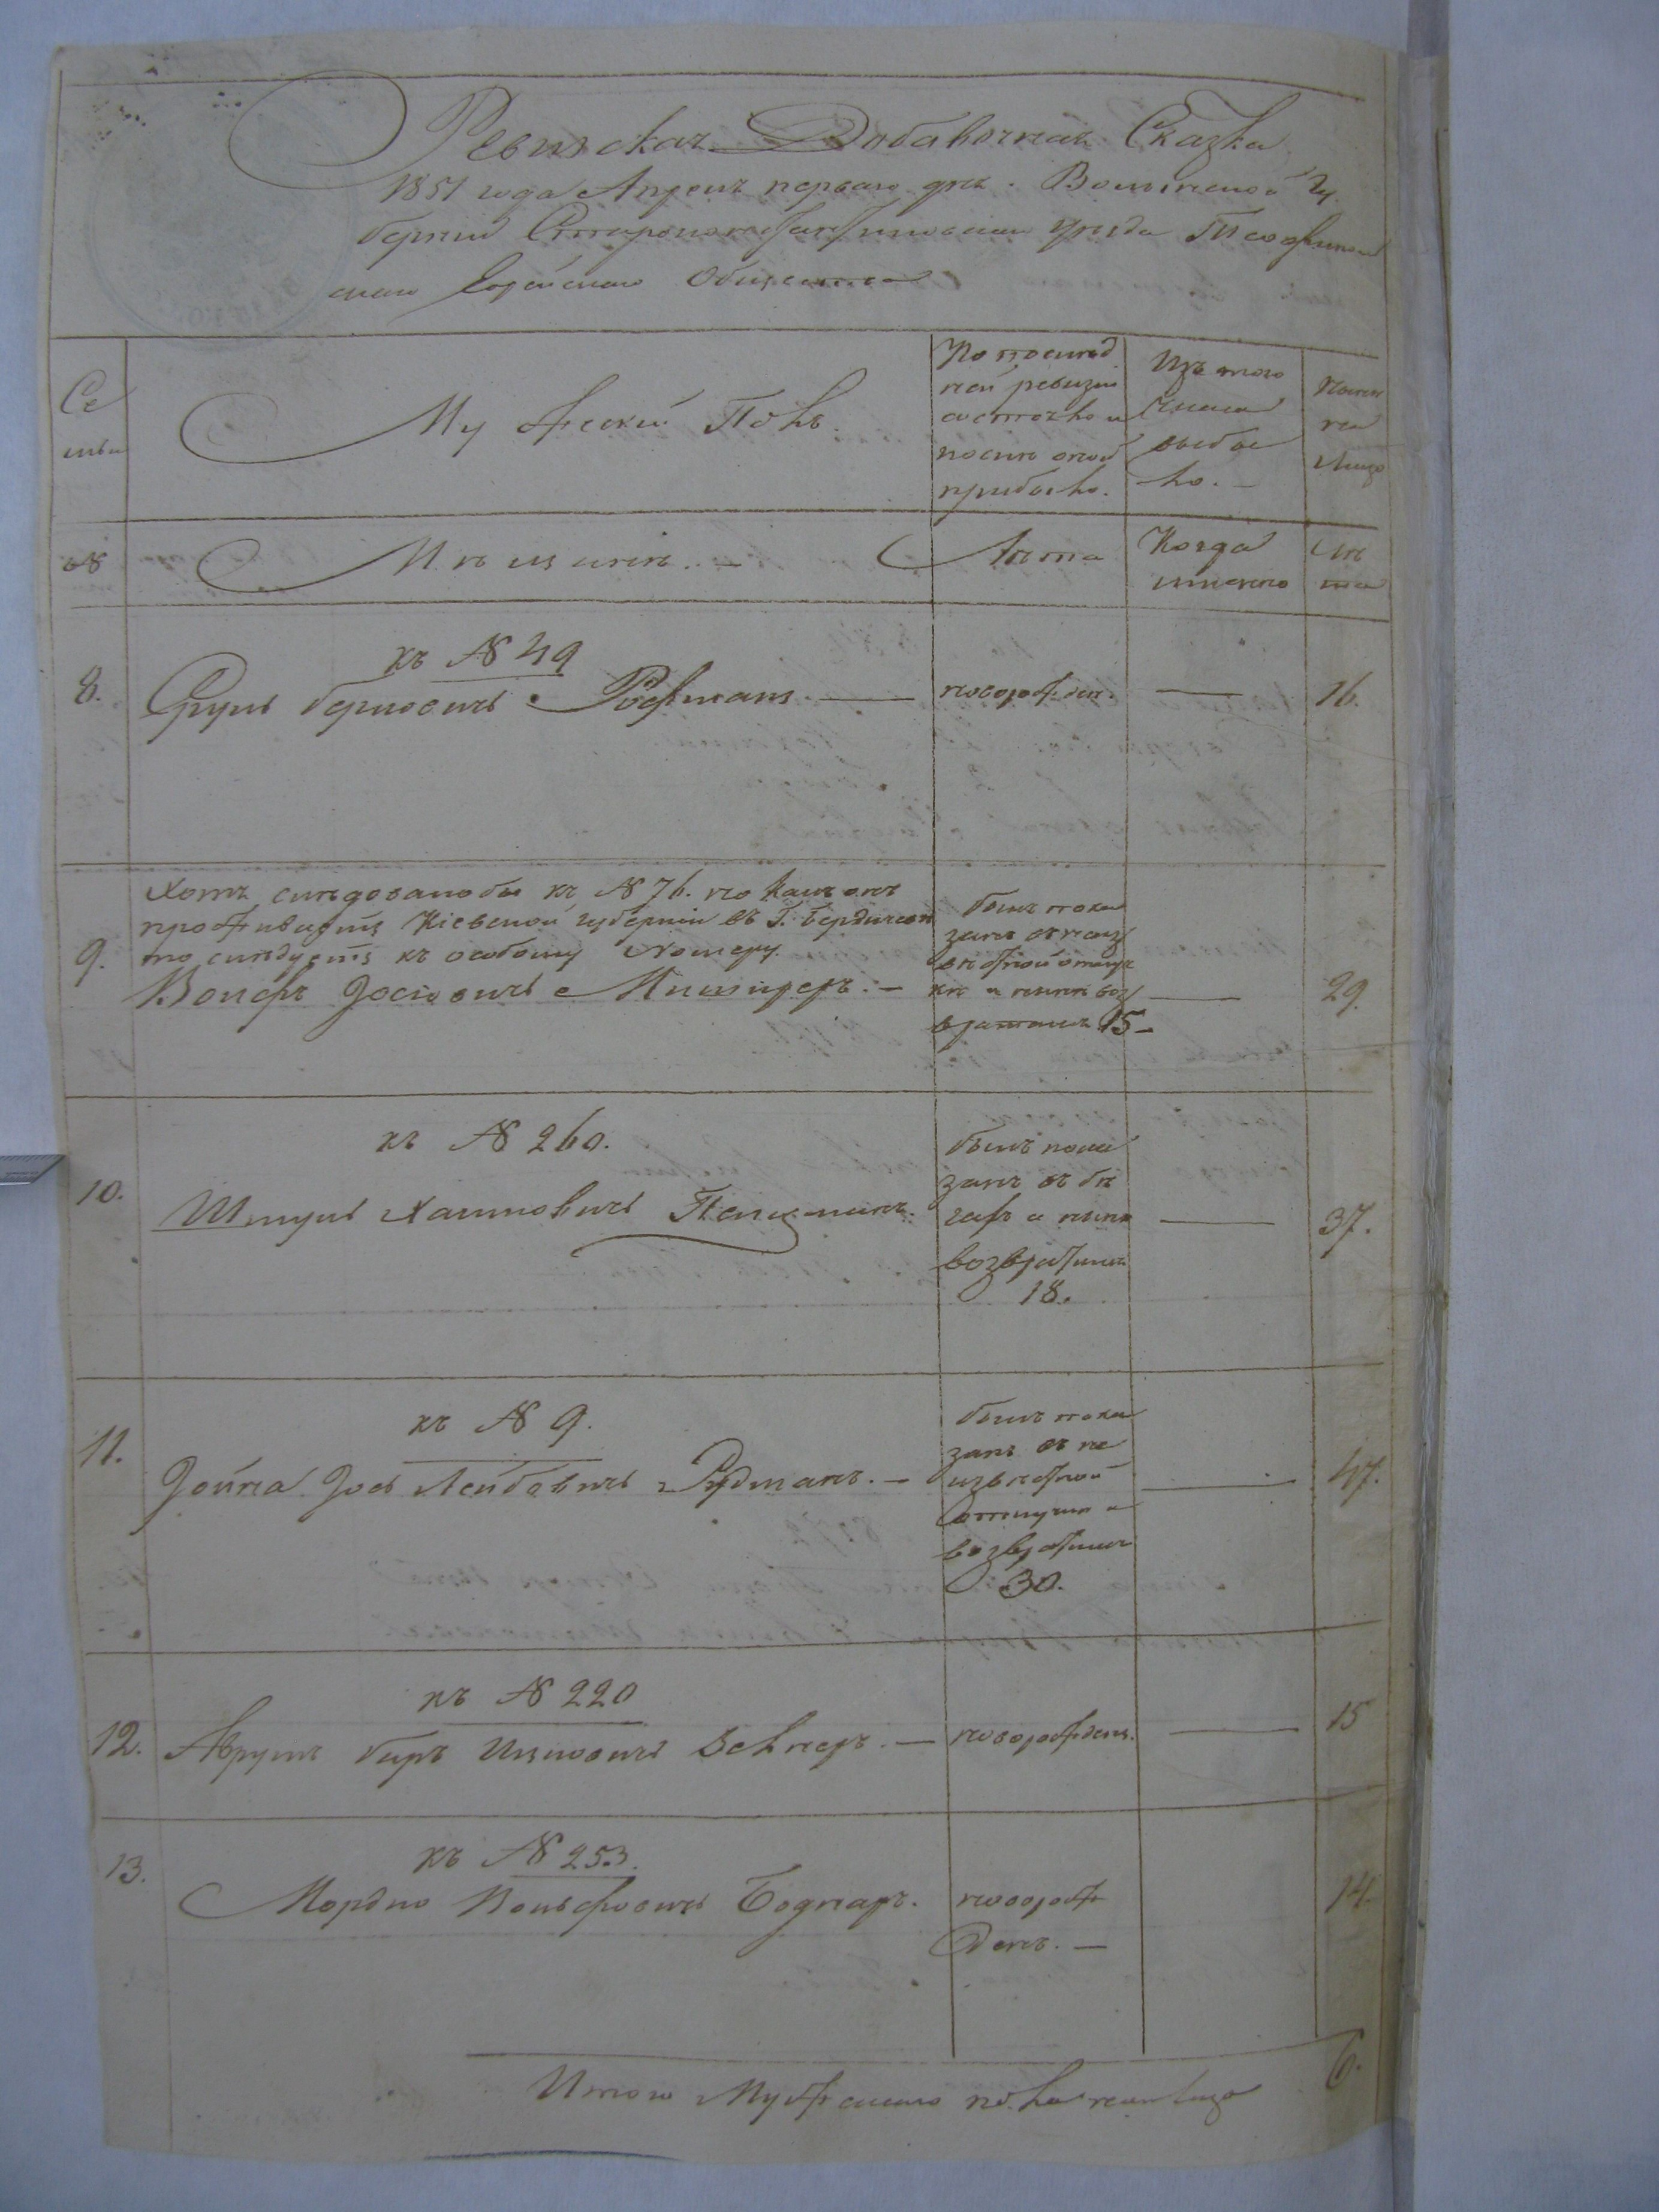 Ревизская Добавочная Сказка
1851 года Апреля перваго дня. Волынской Гу
берніи Староконстантиновскаго уѣзда Теофиполь
скаго Еврейскаго Общества
Се
мьи
Мужеский Полъ.
По послѣд
ней ревизіи
состояло и
послѣ оной
прибыло.
Изъ того
числа
выбы
ло. —
Нынѣ
на
лицо
№
Имѣющиеся. —
Лѣта
Когда
именно
Лѣ
та
къ № 49
8. Сруль Берковичъ Рофманъ — новорожден. — 16.
Хотя слѣдовало бы къ № 76. но какъ онъ
проживаетъ Кіевской губерніи въ г. Бердичевѣ
то слѣдуетъ къ особому номеру.
9. Волфъ Іосіовичъ — 29.
былъ пока
занъ въ неиз
вѣстной отлуч
кѣ и нынѣ воз
вратился 15 —
къ № 260.
10. Шмуль Хаимовичъ — 37.
былъ пока
занъ въ бѣ
гахъ и нынѣ
возвратился
18.
къ № 9.
11. Іойна Іось Лейбовичъ Рудманъ. — 47.
былъ пока
занъ въ не
извѣстной
отлучкѣ и
возвратился
30.
къ № 220
12. Аврумъ Беръ Ицковичъ Зелнеръ. — новорожденъ. — 15
къ № 253.
13. Мордко Вольфовичъ Боднаръ. новорож 14.
денъ. —
Итого Мужескаго пола на лицо 6.